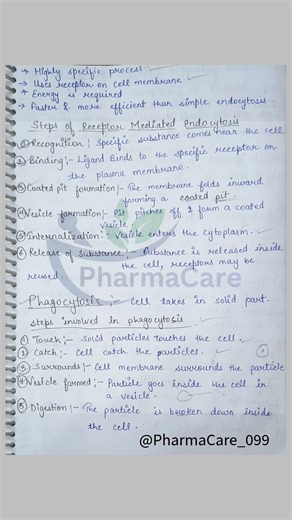 → Highly specific process
→ Uses receptor on cell membrane
→ Energy is required
→ Faster & more efficient than simple endocytosis
Steps of Receptor Mediated Endocytosis
① Recognition :- Specific substance comes near the cell
② Binding :- Ligand binds to the specific receptor on
the plasma membrane.
③ Coated pit formation :- The membrane folds inward
forming a coated pit.
④ Vesicle formation :- Pit pinches off & form a coated
vesicle
⑤ Internalization :- Vesicle enters the cytoplasm.
⑥ Release of substance :- Substance is released inside
the cell, receptors may be
reused.
PharmaCare
Phagocytosis :- Cell takes in solid part-
steps involved in phagocytosis
① Touch :- Solid particles touches the cell.
② Catch :- Cell catch the particles.
③ Surrounds :- Cell membrane surrounds the particle
④ Vesicle formed :- Particle goes inside the cell in
a vesicle.
⑤ Digestion :- The particle is broken down inside
the cell.
@PharmaCare_099